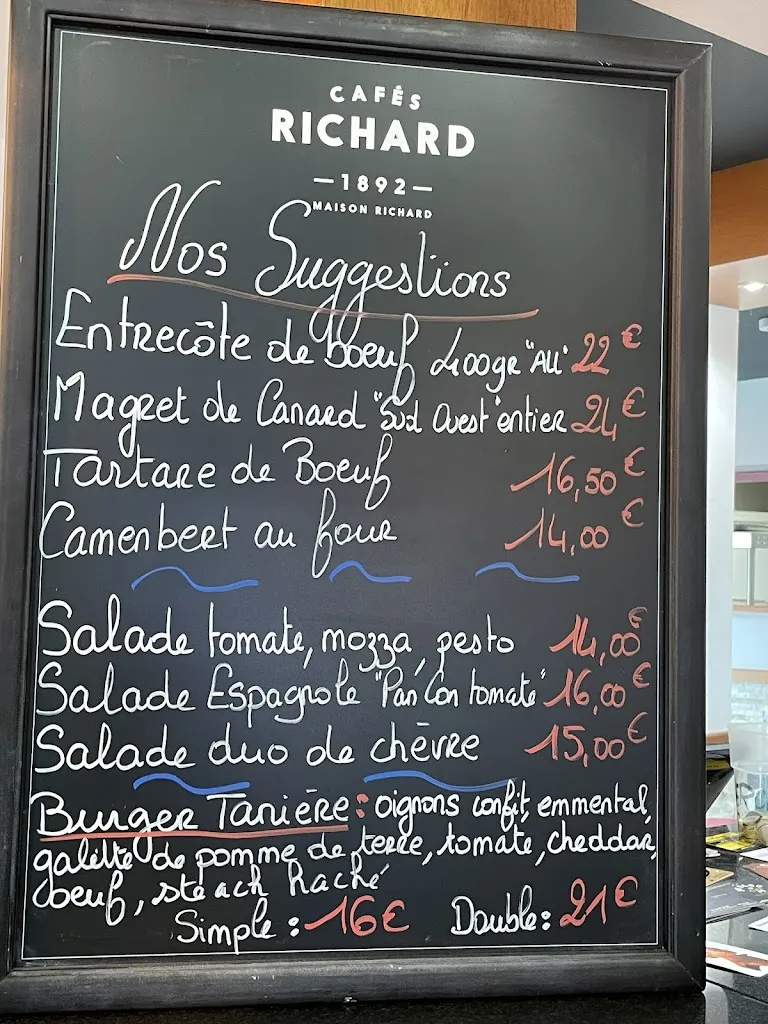 CAFÉS
RICHARD
—1892—
MAISON RICHARD
Nos Suggestions
Entrecôte de boeuf 400gr "ALL" 22 €
Magret de Canard "Sud Ouest" entier 24 €
Tartare de Boeuf 16,50 €
Camenbert au four 14,00 €
Salade tomate, mozza, pesto 14,00 €
Salade Espagnole "Pan Con tomate" 16,00 €
Salade duo de chèvre 15,00 €
Burger Tanière : oignons confit, emmental,
galette de pomme de terre, tomate, cheddar,
oeuf, steack haché
Simple : 16 € Double : 21 €